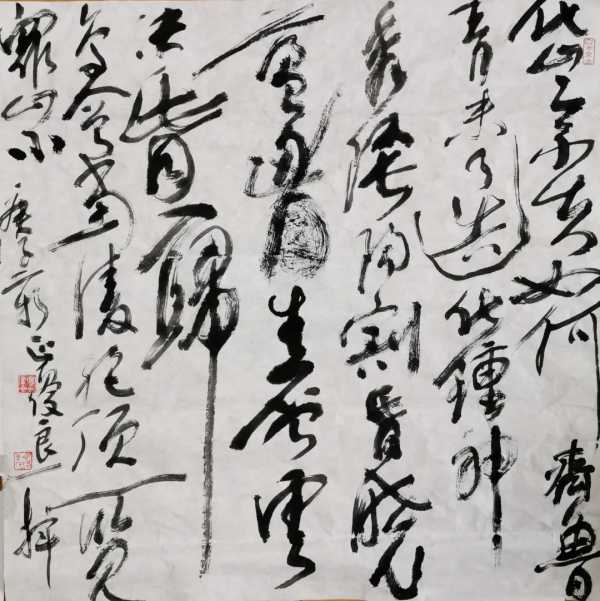 岱宗夫如何齊魯
青未了造化鍾神
秀陰陽割昏曉
胷生層雲
決眥入歸
鳥會當凌絕頂一覽
眾山小 庚子新正俊良揮